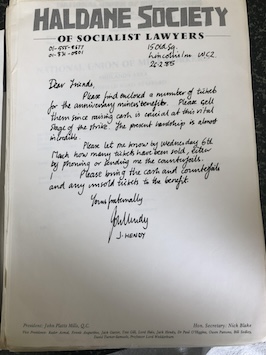 HALDANE SOCIETY
OF SOCIALIST LAWYERS
15 Old Sq.
Lincolns Inn WC2
26.2.85
Dear Friends,
Please find enclosed a number of tickets
for the anniversary miners benefit. Please sell
them since raising cash is crucial at this vital
stage of the strike. The present hardship is almost
incredible.
Please let me know by Wednesday 6th
March how many tickets have been sold, either
by phoning or sending me the counterfoils.
Please bring the cash and counterfoils
and any unsold tickets to the benefit.
Yours fraternally
J. HENDY
President: John Platts-Mills, Q.C.
Hon. Secretary: Nick Blake